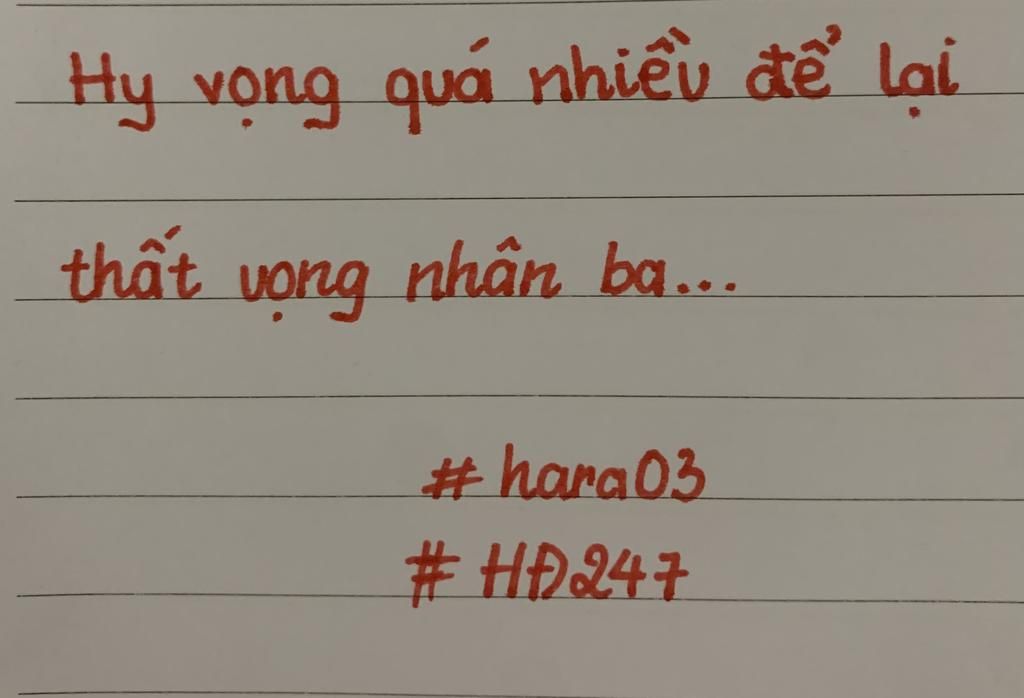 Hy vọng quá nhiều để lại
thất vọng nhân ba...
# hara03
# HĐ247